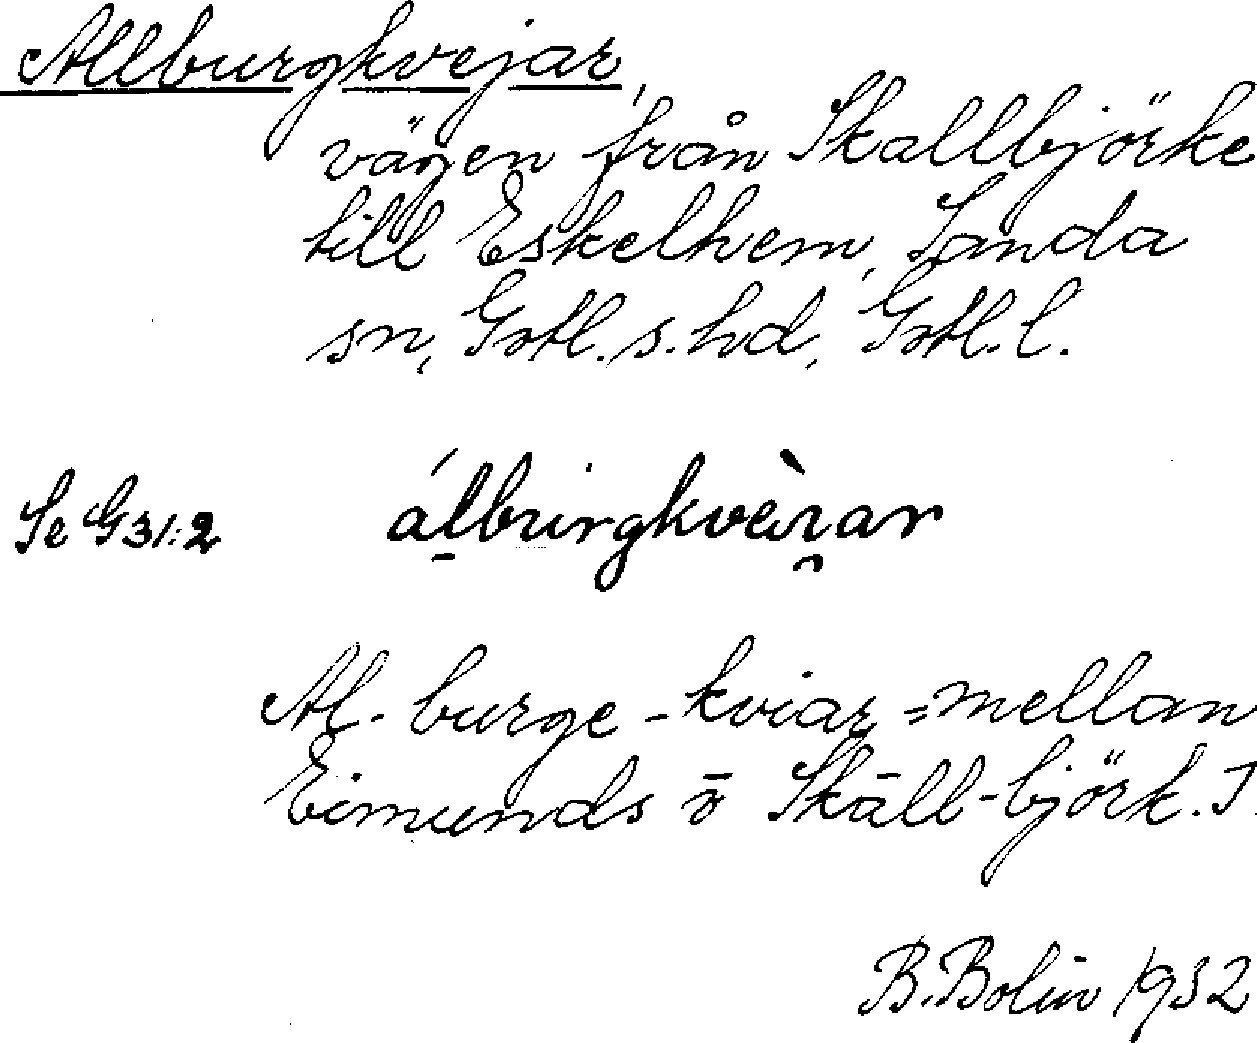 Allburgkvejar,
vägen från Skallbjörke
till Eskelhem, Sanda
sn, Gotl. s. hd, Gotl. l.
Se G31:2 álburgkvèi̯ar
Al-burge-kviar = mellan
Eimunds o Skall-björk. J.
B. Bolin 1952